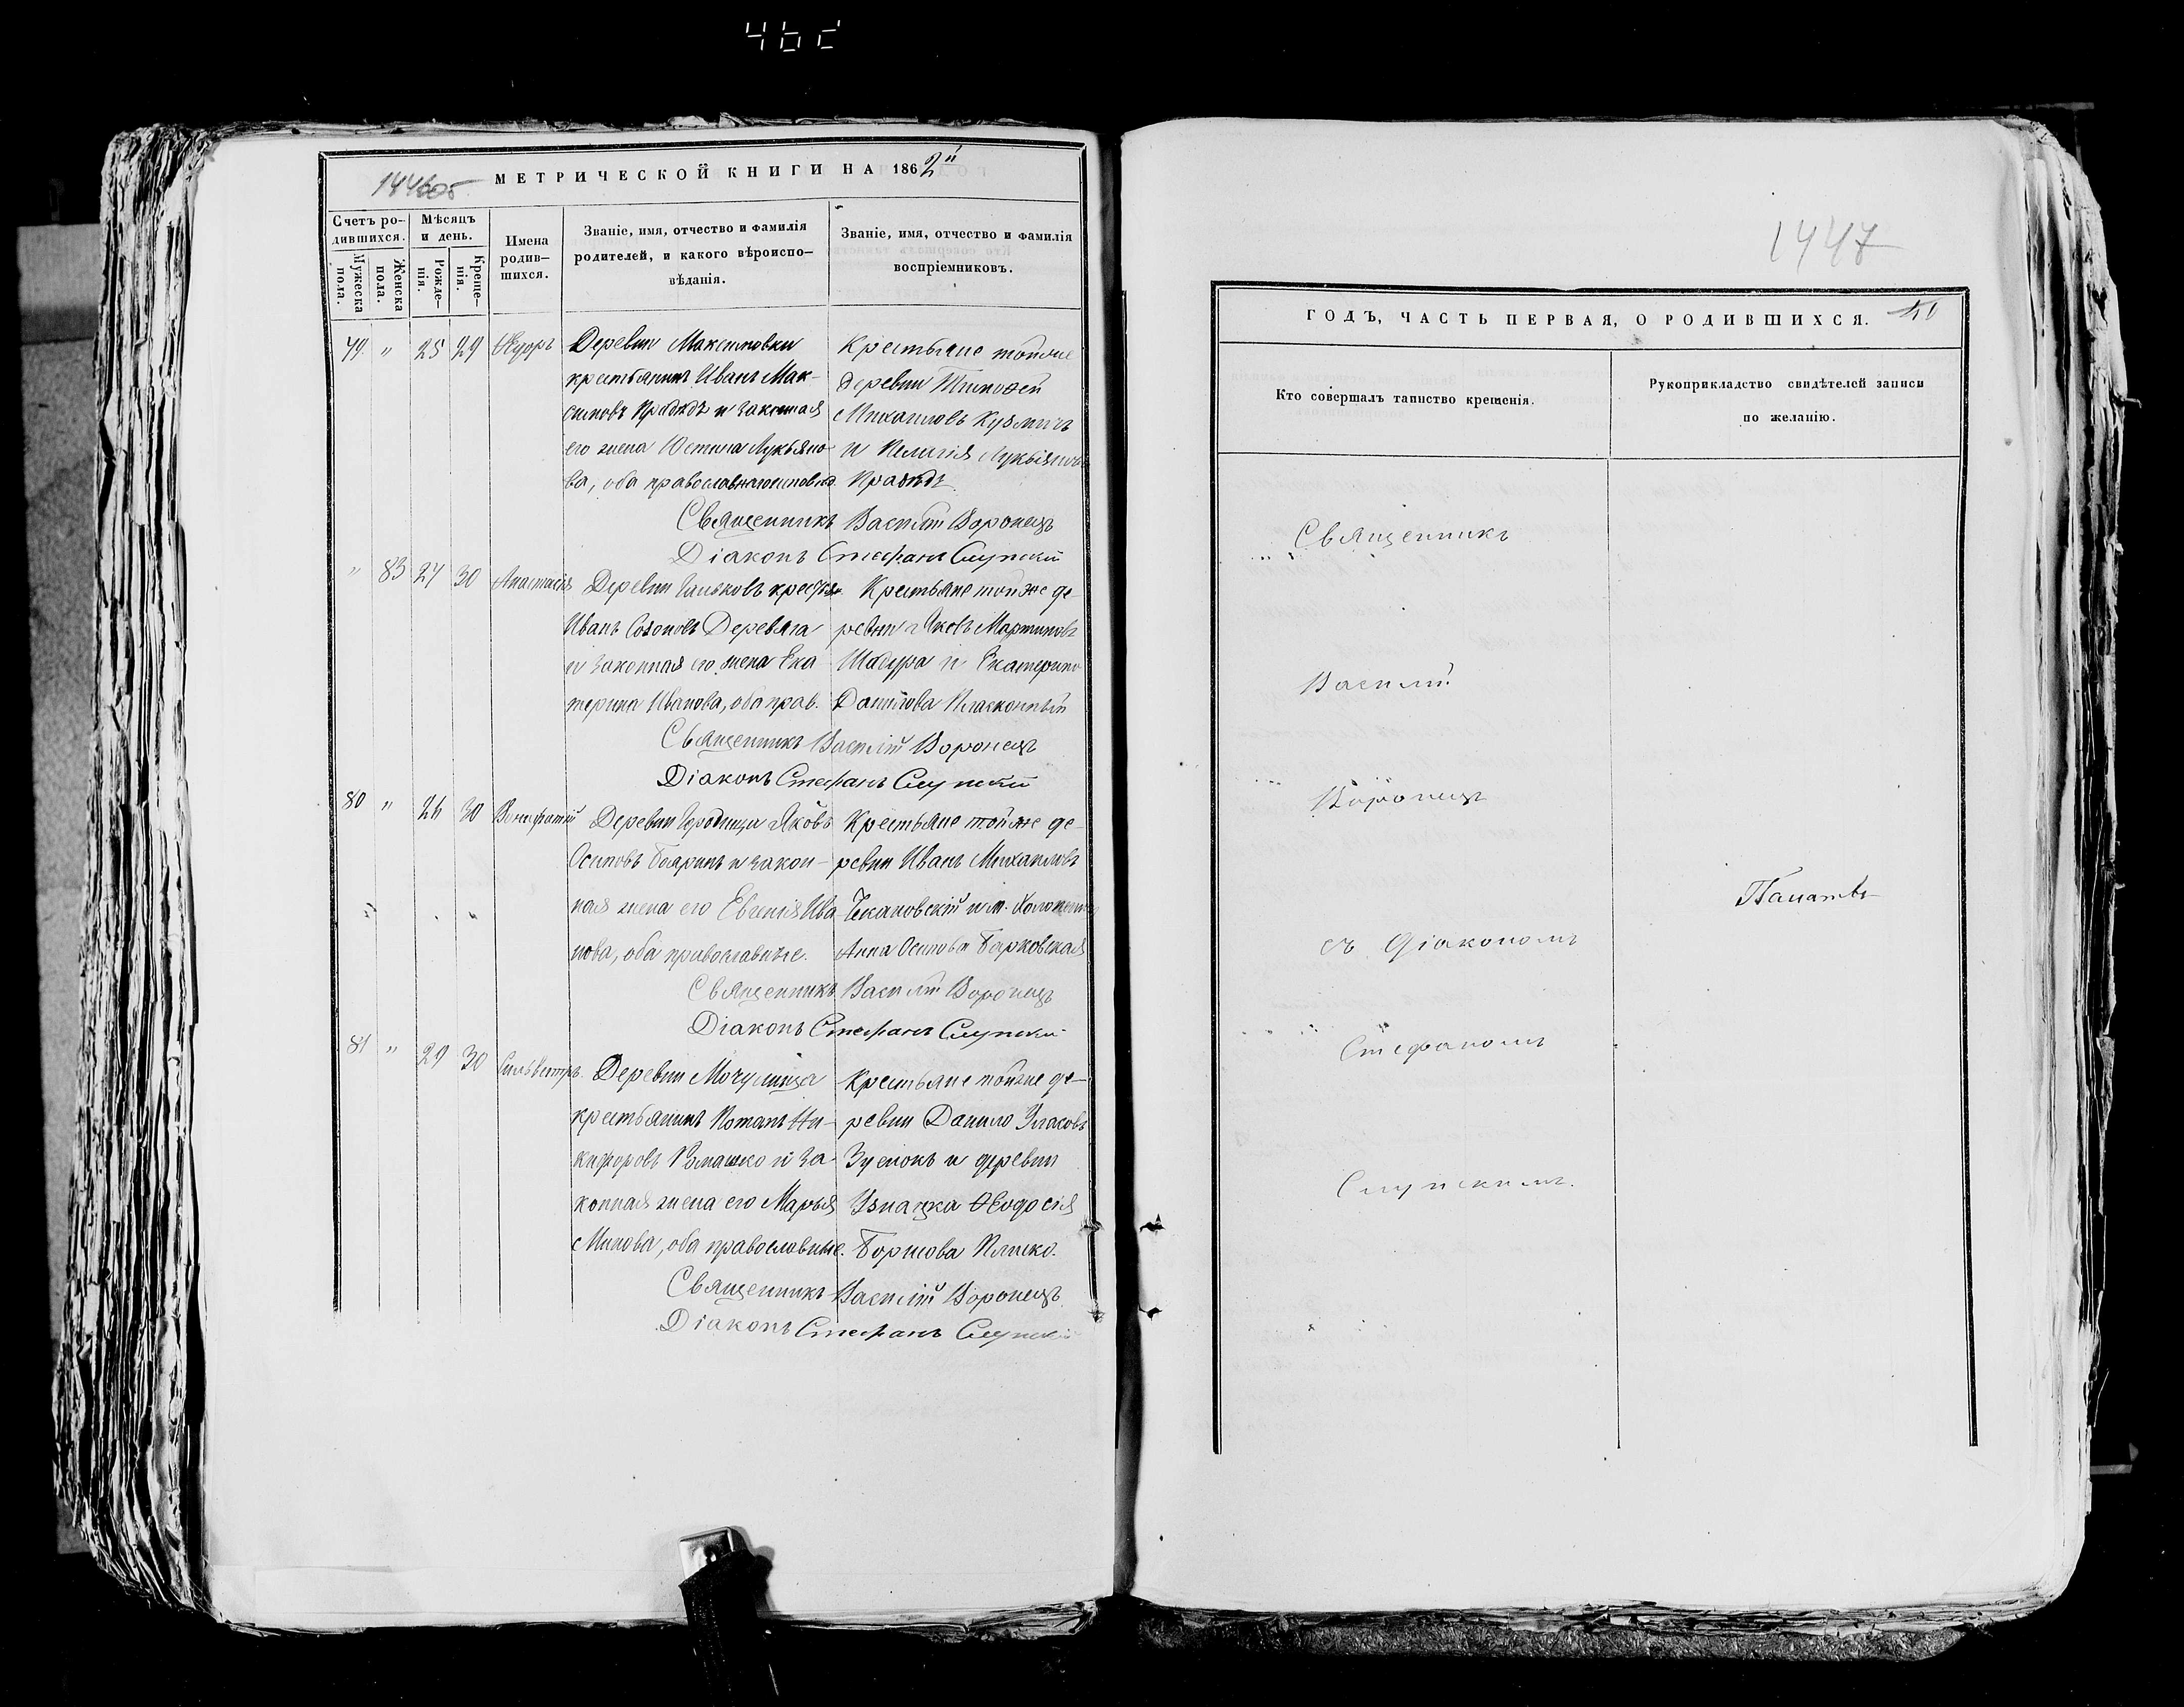 МЕТРИЧЕСКОЙ КНИГИ НА 1862й
Счетъ ро-
дившихся.
Мужеска
пола.
Женска
пола.
Мѣсяцъ
и день.
Рожде-
нія.
Креще-
нія.
Имена
родив-
шихся.
Званіе, имя, отчество и фамилія
родителей, и какого вѣроиспо-
вѣданія.
Званіе, имя, отчество и фамилія
воспріемниковъ.
79. " 25 29 Ѳеодръ
Деревни Максимовки
крестьянинъ Иванъ Мак-
симовъ и законная
его жена Юстина Лукьяно-
ва, оба православнаго
Крестьяне тойже
деревни Тимоѳей
Михаиловъ Кузмичъ
и Пелагія Лукьянова
Священникъ Василій Воронецъ
Діаконъ Стефанъ Слупскій
" 83 27 30 Анастасія
Деревни
Иванъ Созоновъ Деревяга
и законная его жена Ека-
терина Иванова, оба прав.
Крестьяне тойже де-
ревни Яковъ Мартиновъ
Шабура и Екатерина
Данилова
Священникъ Василій Воронецъ
Діаконъ Стефанъ Слупскій
80 " 26 30 Вонифатій
Деревни Городища Яковъ
Осиповъ Бояринъ и закон-
ная жена его Евгенія Ива-
нова, оба православные.
Крестьяне тойже де-
ревни Иванъ Михаиловъ
Чекановскій и м.
Анна Осипова Барковская
Священникъ Василій Воронецъ
Діаконъ Стефанъ Слупскій
81 " 29 30 Сильвестръ.
Деревни Мочулища
крестьянинъ Романъ Ни-
кифоровъ Ромашко и за-
конная жена его Марья
Минова, оба православные.
Крестьяне тойже де-
ревни Данило
и деревни
Ѳеодосія
Борисова
Священникъ Василій Воронецъ
Діаконъ Стефанъ Слупскій
1447
ГОДЪ, ЧАСТЬ ПЕРВАЯ, О РОДИВШИХСЯ.
Кто совершалъ таинство крещенія.
Рукоприкладство свидѣтелей записи
по желанію.
Священникъ
Василій
Воронецъ
съ Діакономъ
Стефаномъ
Слупскимъ.